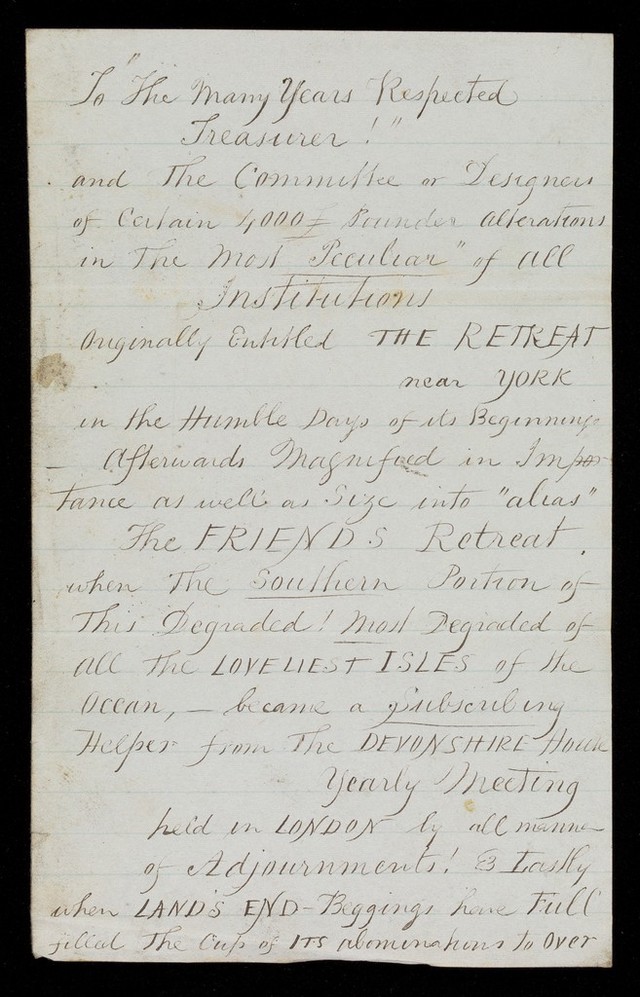 To "The Many Years Respected
Treasurer!"
and The Committee or Designers
of Certain 4000£ Pounder alterations
in The Most Peculiar" of all
Institutions
Originally Entitled THE RETREAT
near YORK
in the Humble Days of its Beginnings
— Afterwards Magnified in Impor
tance as well as Size into "alias"
The FRIENDS Retreat.
when The Southern Portion of
This Degraded! Most Degraded of
all The LOVELIEST ISLES of the
Ocean, — became a Subscribing
Helper from The DEVONSHIRE House
Yearly Meeting
held in LONDON by all manner
of Adjournments! & Lastly
when LANDS END - Beggings have Full
filled The Cup of ITS abominations to Over